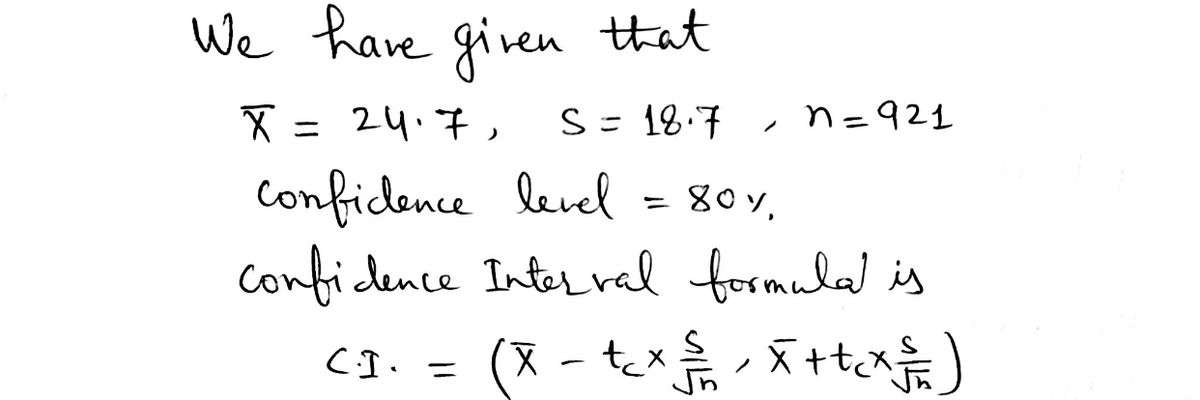 We have given that
X̄ = 24.7, S = 18.7, n = 921
Confidence level = 80%.
Confidence Interval formula is
C.I. = (X̄ - t_c × S/√n, X̄ + t_c × S/√n)